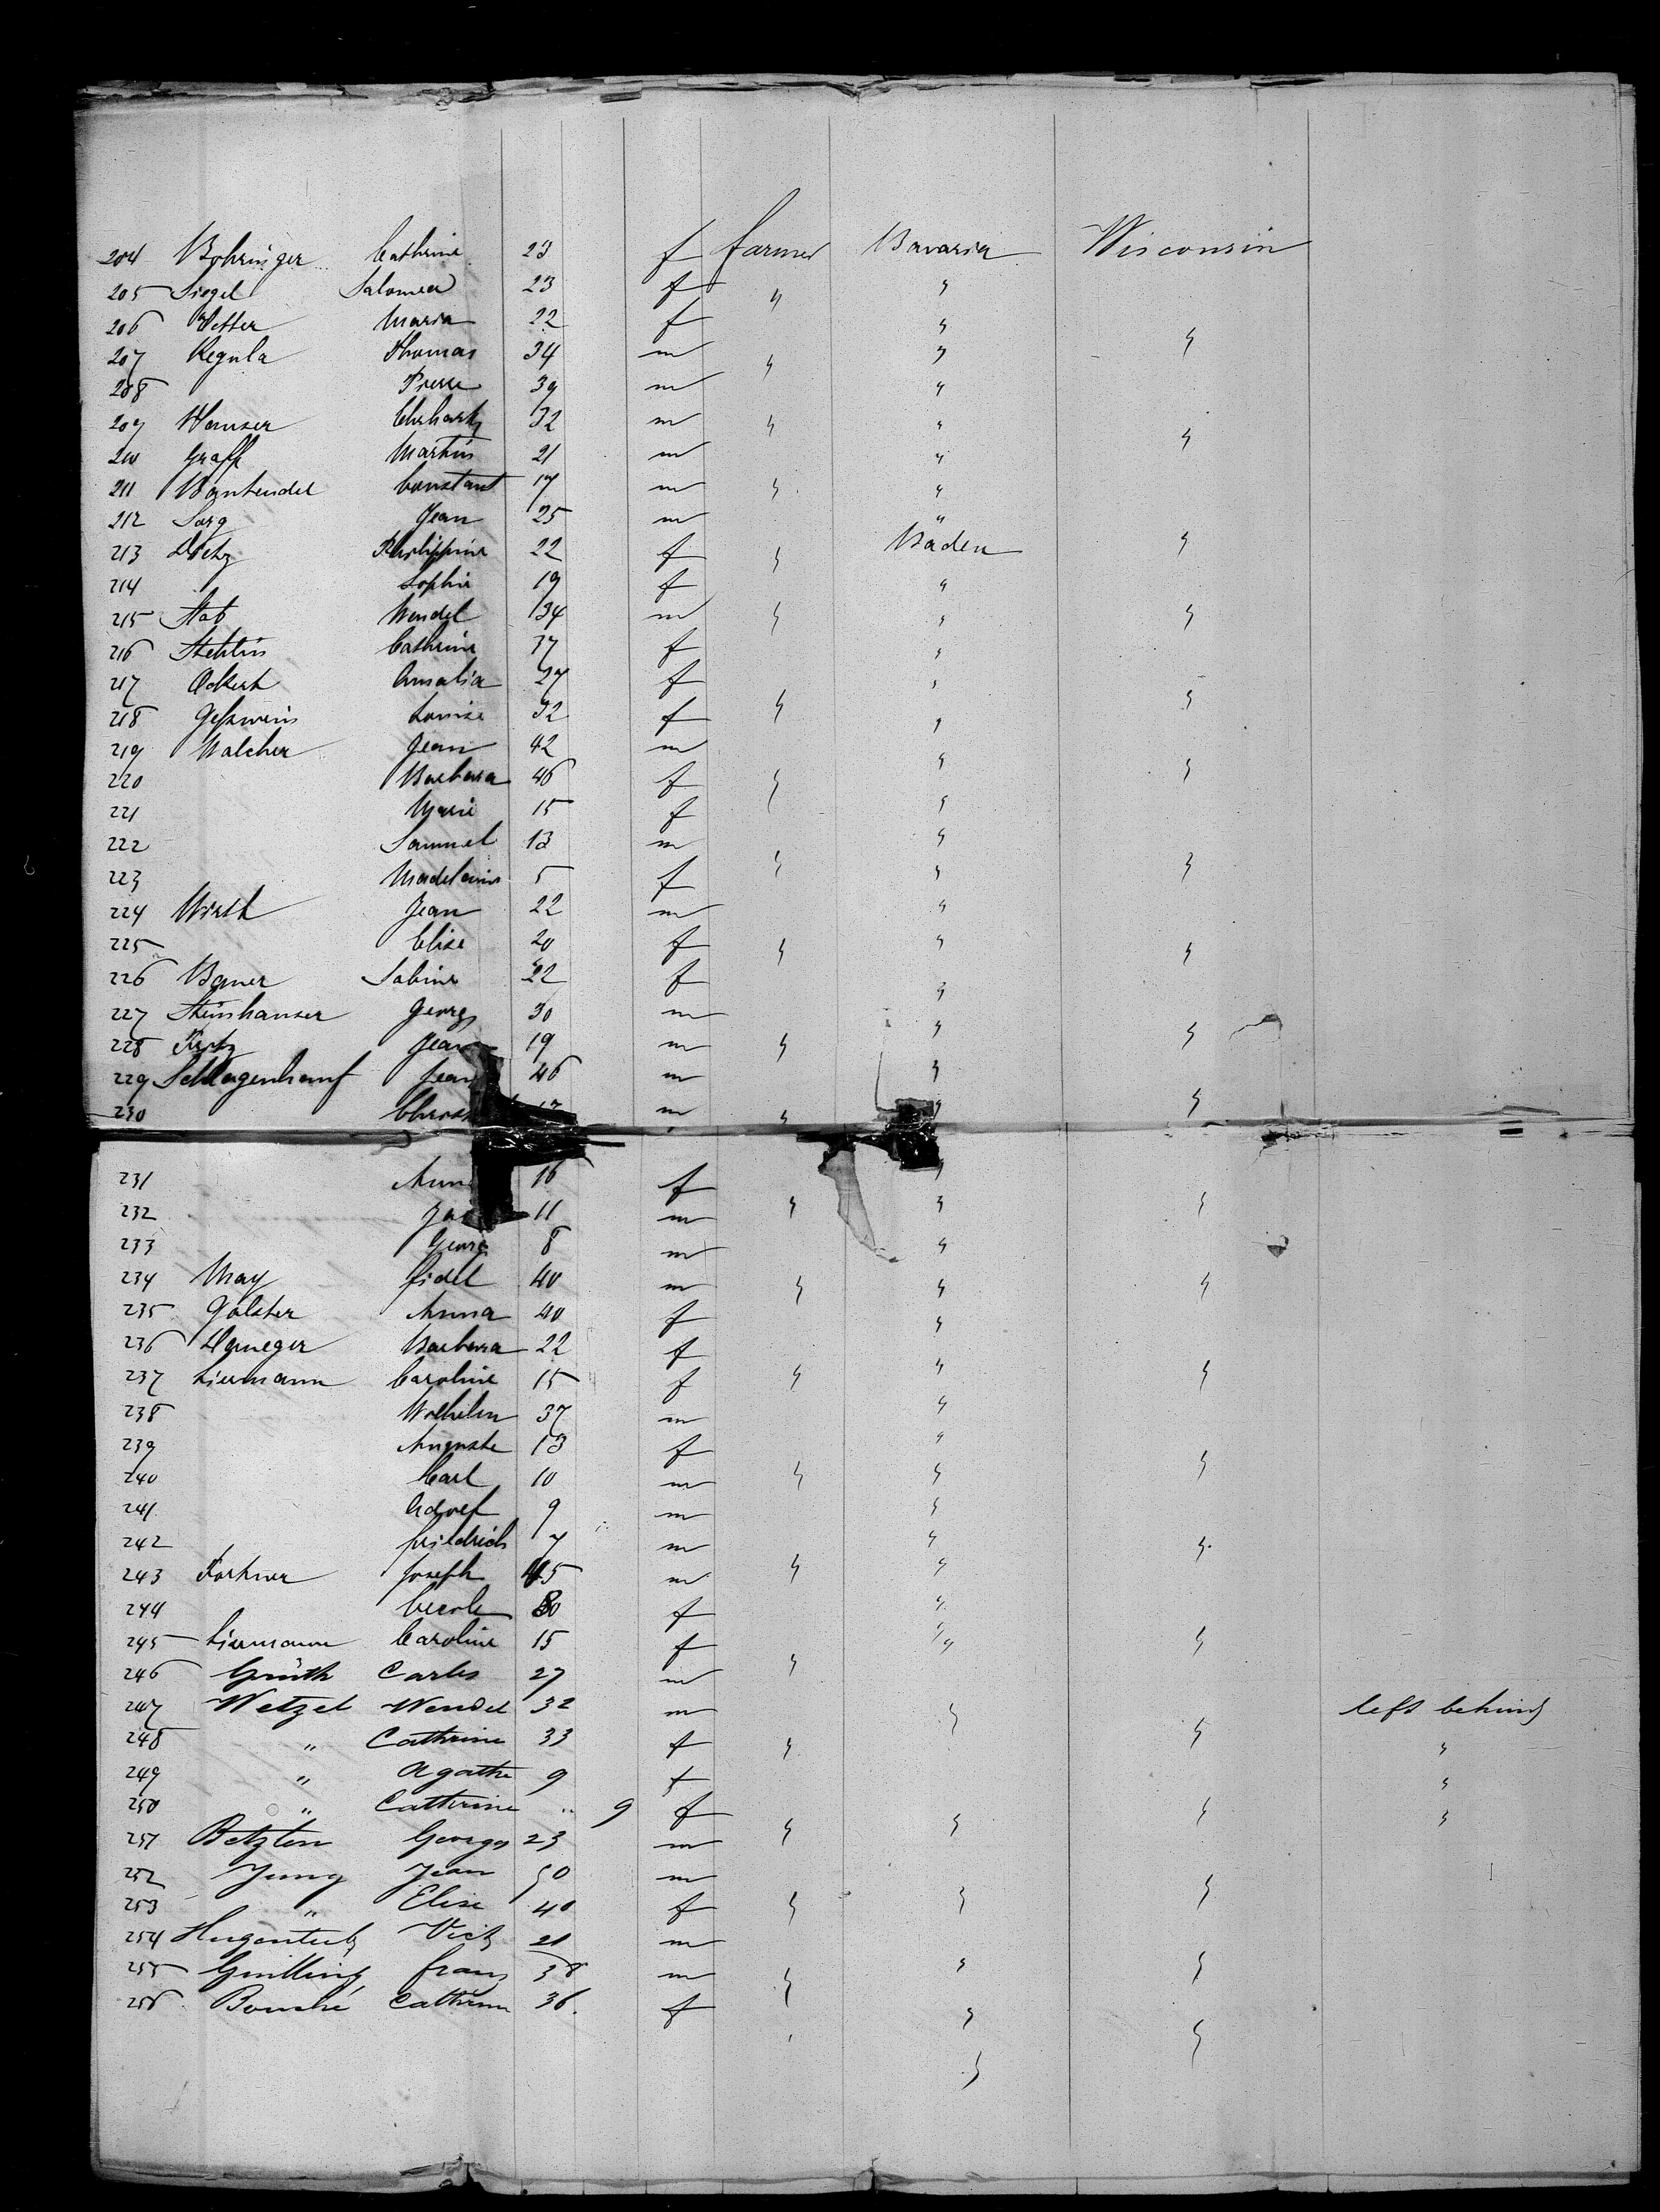 204 Bohringer Cathrine 23 f farmer Bavaria Wisconsin
205 Siegel Salomea 23 f " "
206 Vetter Maria 22 f " "
207 Regula Thomas 34 m " "
208 Pierre 39 m "
209 Hauser Ehrhart 32 m " " "
210 Graff Martin 21 m "
211 Constant 17 m " "
212 Sorg Jean 25 m "
213 Dietz Philippine 22 f " Baden "
214 Sophie 19 f "
215 Stab Wendel 34 m " " "
216 Stehlin Cathrine 37 f "
217 Ackert Amalia 27 f " "
218 Geßwein Louise 32 f " "
219 Walcher Jean 42 m "
220 Barbara 46 f " "
221 Marie 15 f "
222 Samuel 13 m "
223 Madelaine 5 f " " "
224 Wirth Jean 22 m "
225 Elise 20 f " " "
226 Bauer Sabine 22 f "
227 Steinhauser Georg 30 m "
228 Jean 19 m " "
229 Schlagenhauf Jean 46 m "
230 m " " "
231 Anna 16 f "
232 11 m " " "
233 Georg 8 m "
234 May fidel 40 m " " "
235 Golster Anna 40 f "
236 Barbara 22 f
237 Liermann Caroline 15 f " " "
238 Wilhelm 37 m "
239 Auguste 13 f "
240 Carl 10 m " " "
241 Adolf 9 m "
242 friedrich 7 m " "
243 Joseph 45 m " "
244 f "
245 Liermann Caroline 15 f " "
246 Carles 27 m "
247 Wetzel Wendel 32 m " left behind
248 " Cathrine 33 f " " "
249 " Agathe 9 f "
250 " Catherine " 9 f " "
251 Georges 23 m " "
252 Jung Jean 50 m
253 " Elise 40 f " " "
254 21 m
255 franz 38 m " " "
256 Bouché Cathrine 36. f " "
"